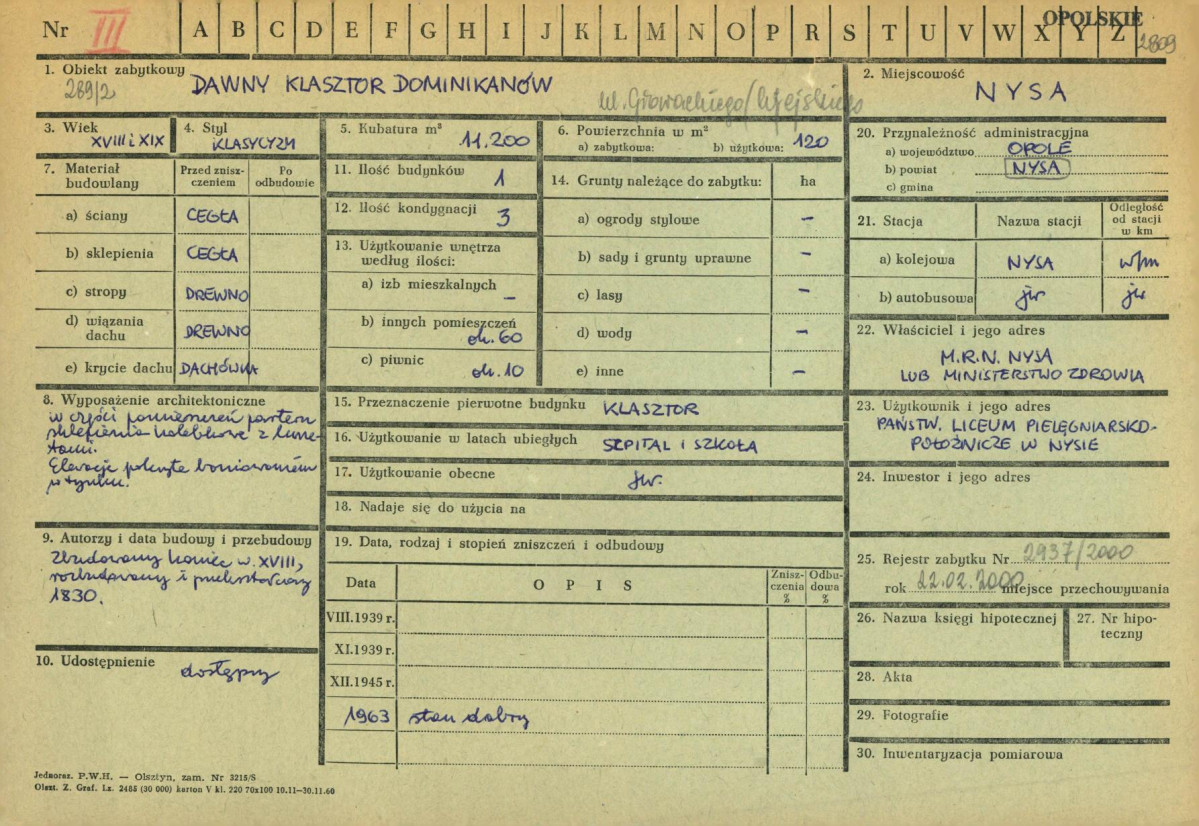 Nr III A B C D E F G H I J K L M N O P R S T U V W X Y Z
OPOLSKIE
2809
1. Obiekt zabytkowy
289/2
DAWNY KLASZTOR DOMINIKANÓW
ul. Głowackiego/Ujejskiego
2. Miejscowość
NYSA
3. Wiek
XVIII i XIX
4. Styl
KLASYCYZM
5. Kubatura m³
11.200
6. Powierzchnia w m²
a) zabytkowa: b) użytkowa: 120
20. Przynależność administracyjna
a) województwo OPOLE
b) powiat NYSA
c) gmina
7. Materiał budowlany
Przed zniszczeniem
Po odbudowie
a) ściany CEGŁA
b) sklepienia CEGŁA
c) stropy DREWNO
d) wiązania dachu DREWNO
e) krycie dachu DACHÓWKA
11. Ilość budynków 1
12. Ilość kondygnacji 3
13. Użytkowanie wnętrza
według ilości:
a) izb mieszkalnych –
b) innych pomieszczeń
ok. 60
c) piwnic
ok. 10
14. Grunty należące do zabytku: ha
a) ogrody stylowe –
b) sady i grunty uprawne –
c) lasy –
d) wody –
e) inne –
21. Stacja
Nazwa stacji
Odległość
od stacji
w km
a) kolejowa NYSA w/m
b) autobusowa jw jw
22. Właściciel i jego adres
M.R.N. NYSA
LUB MINISTERSTWO ZDROWIA
8. Wyposażenie architektoniczne
w części pomieszczeń parteru
sklepienia kolebkowe z lune-
tami.
Elewacje pokryte boniowaniem
w tynku.
15. Przeznaczenie pierwotne budynku KLASZTOR
16. Użytkowanie w latach ubiegłych SZPITAL I SZKOŁA
17. Użytkowanie obecne jw.
18. Nadaje się do użycia na
23. Użytkownik i jego adres
PAŃSTW. LICEUM PIELĘGNIARSKO-
POŁOŻNICZE W NYSIE
24. Inwestor i jego adres
9. Autorzy i data budowy i przebudowy
Zbudowany koniec w. XVIII,
rozbudowany i przekształcony
1830.
10. Udostępnienie
dostępny
19. Data, rodzaj i stopień zniszczeń i odbudowy
Data
O P I S
Znisz-
czenia
%
Odbu-
dowa
%
VIII.1939 r.
XI.1939 r.
XII.1945 r.
1963 stan dobry
25. Rejestr zabytku Nr 2937/2000
rok 22.02.2000 miejsce przechowywania
26. Nazwa księgi hipotecznej
27. Nr hipo-
teczny
28. Akta
29. Fotografie
30. Inwentaryzacja pomiarowa
Jednoraz. P.W.H. — Olsztyn, zam. Nr 3215/S
Olszt. Z. Graf. Lz. 2485 (30 000) karton V kl. 220 70x100 10.11—30.11.60